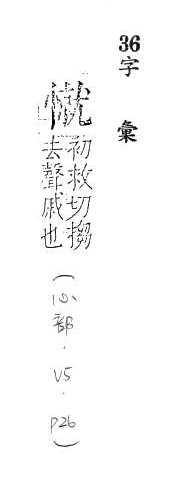 36
字彙
憱
初救切搊
去聲戚也
(心部.V5.P26)